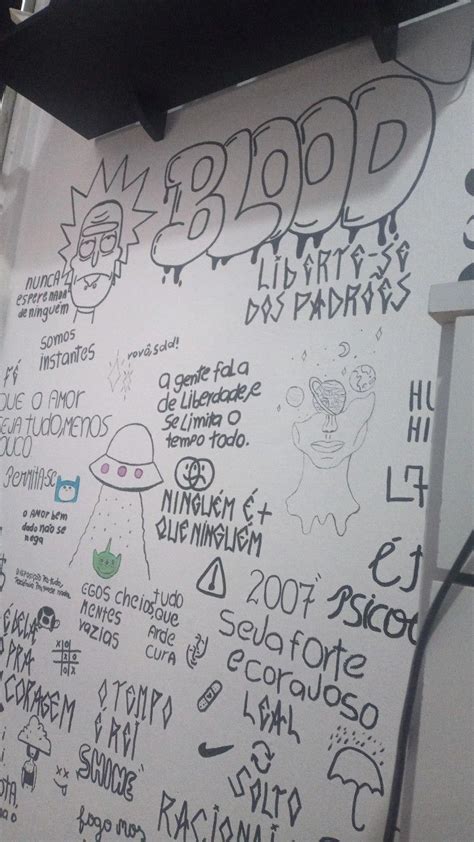 BLOOD
LIBERTE-SE
DOS PADRÕES
NUNCA
ESPERE NADA
de NINGUÉM
somos
instantes
vovô, sold!
FÉ
QUE O AMOR
SEJA TUDO, MENOS
POUCO
A gente fala
de Liberdade, e
se Limita o
tempo todo.
Permita-se
NINGUÉM É +
QUE NINGUÉM
O AMOR bem
dado não se
nega
L7
EGOS cheios,
MENTES
vazias
tudo
que
Arde
CURA
2007
PSICO
Seja forte
e corajoso
É PELA
PRA
CORAGEM
X O
O TEMPO
É REI
SHINE
LEAL
SOLTO
fogo nos
RACIONAI